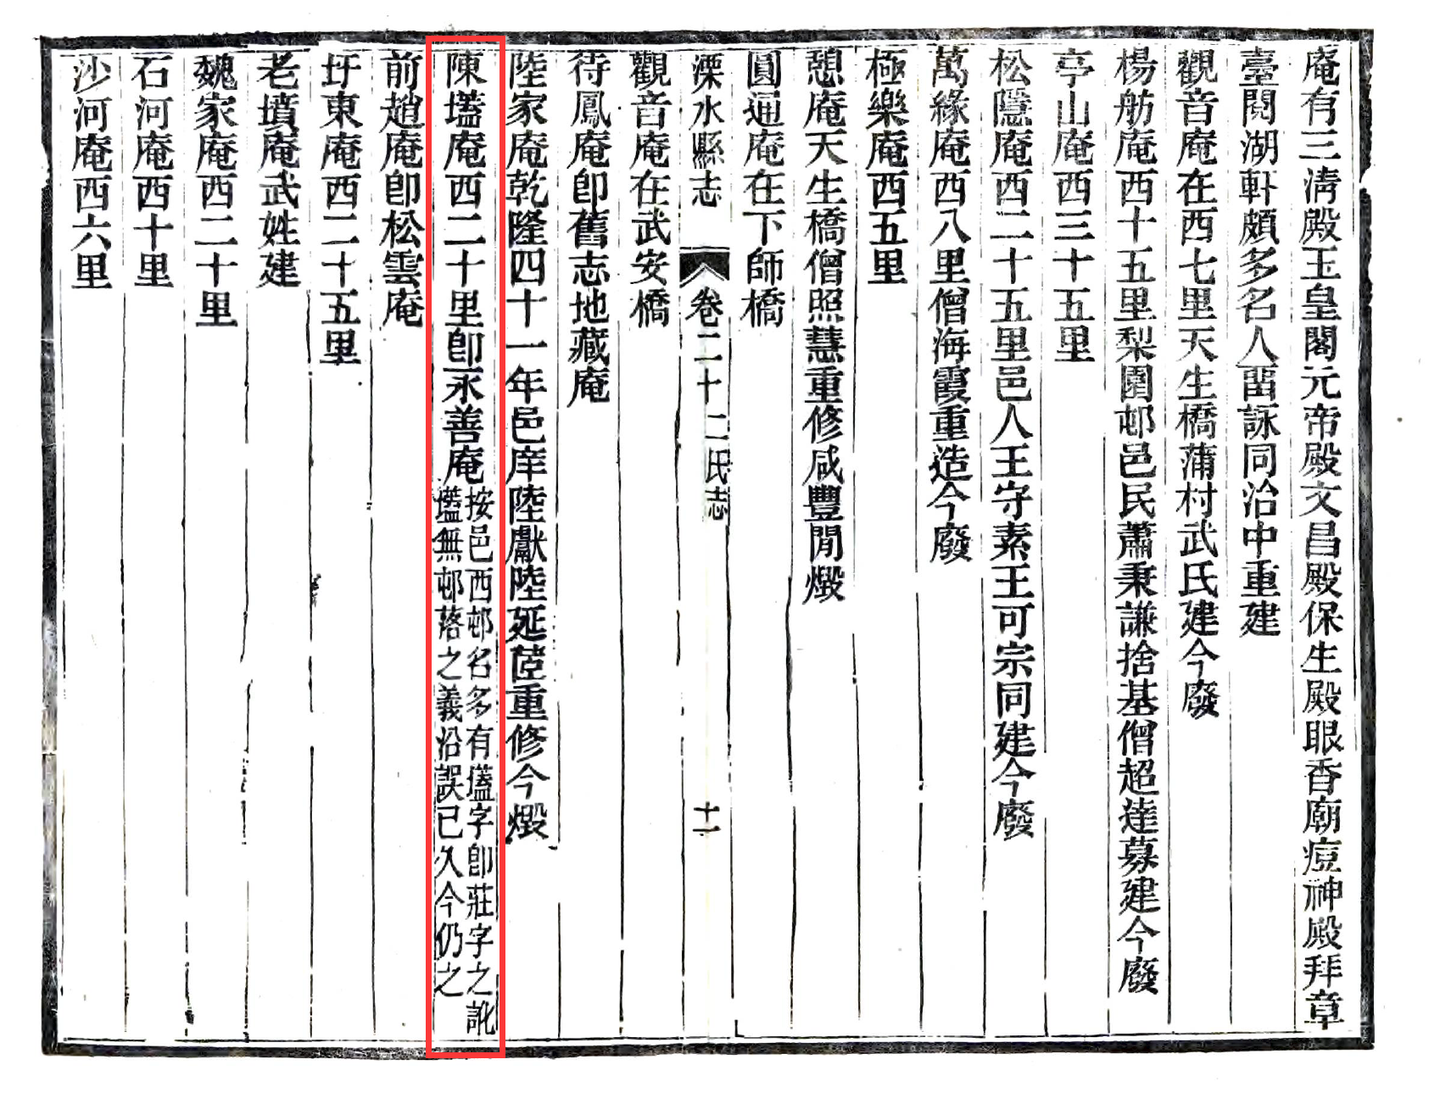 庵有三淸殿玉皇閣元帝殿文昌殿保生殿眼香廟痘神殿拜章
臺閱湖軒頗多名人畱詠同治中重建
觀音庵在西七里天生橋蒲村武氏建今廢
楊舫庵西十五里梨園邨邑民蕭秉謙捨基僧超達募建今廢
亭山庵西三十五里
松隱庵西二十五里邑人王守素王可宗同建今廢
萬緣庵西八里僧海霞重造今廢
極樂庵西五里
憩庵天生橋僧照慧重修咸豐閒燬
圓通庵在下師橋
溧水縣志 卷二十 二氏志 十一
觀音庵在武安橋
待鳳庵卽舊志地藏庵
陸家庵乾隆四十一年邑庠陸獻陸延重修今燬
陳壏庵西二十里卽永善庵
按邑西邨名多有壏字卽莊字之訛
壏無邨落之義沿誤已久今仍之
前趙庵卽松雲庵
圩東庵西二十五里
老墳庵武姓建
魏家庵西二十里
石河庵西十里
沙河庵西六里